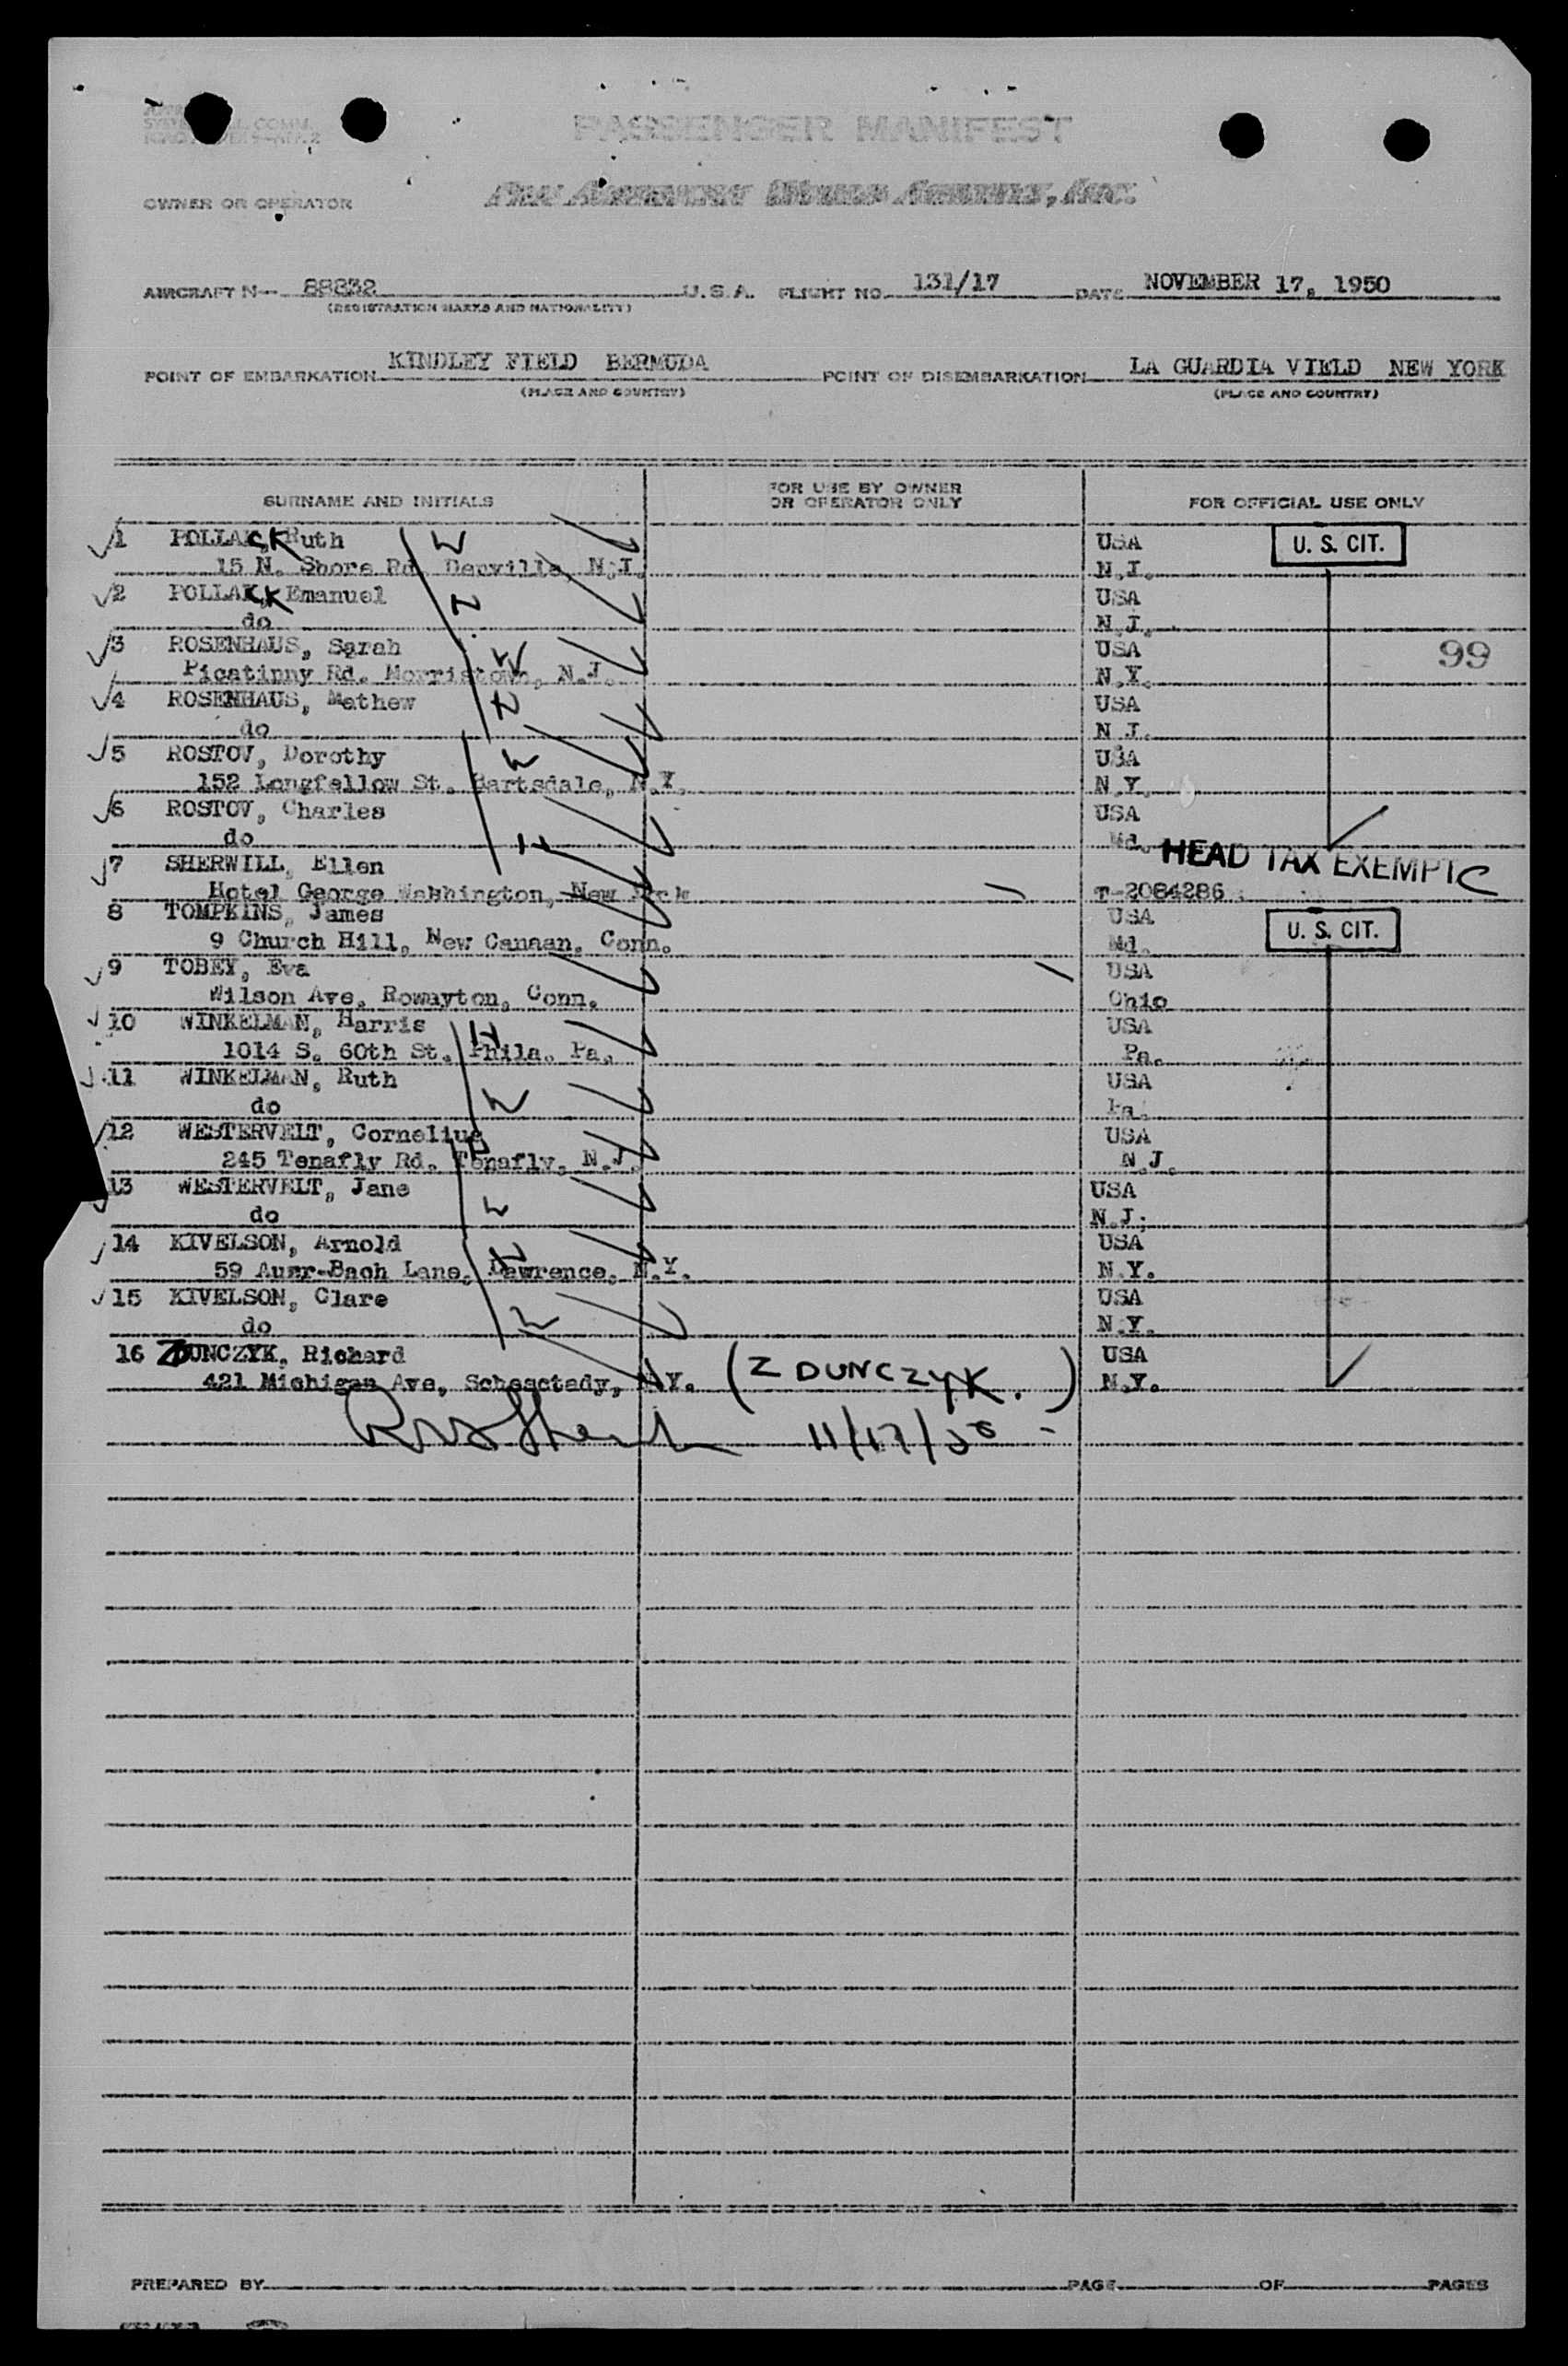 PASSENGER MANIFEST
OWNER OR OPERATOR Pan American World Airways, Inc.
AIRCRAFT N— 88832 U.S.A. FLIGHT NO. 131/17 DATE NOVEMBER 17, 1950
(REGISTRATION MARKS AND NATIONALITY)
POINT OF EMBARKATION KINDLEY FIELD BERMUDA POINT OF DISEMBARKATION LA GUARDIA VIELD NEW YORK
(PLACE AND COUNTRY) (PLACE AND COUNTRY)
SURNAME AND INITIALS FOR USE BY OWNER OR OPERATOR ONLY FOR OFFICIAL USE ONLY
1 POLLACK, Ruth USA U. S. CIT.
15 N. Shore Rd. Denville, N.J. N.J.
2 POLLACK, Emanuel USA
do N.J.
3 ROSENHAUS, Sarah USA 99
Picatinny Rd. Morristown, N.J. N.Y.
4 ROSENHAUS, Mathew USA
do N.J.
5 ROSTOV, Dorothy USA
152 Longfellow St. Hartsdale, N.Y. N.Y.
6 ROSTOV, Charles USA
do Md.
7 SHERWILL, Ellen HEAD TAX EXEMPT C
Hotel George Wahhington, New York T-2084286
8 TOMPKINS, James USA U. S. CIT.
9 Church Hill, New Canaan, Conn. Md.
9 TOBEY, Eva USA
Wilson Ave. Rowayton, Conn. Ohio
10 WINKELMAN, Harris USA
1014 S. 60th St. Phila. Pa. Pa.
11 WINKELMAN, Ruth USA
do Pa.
12 WESTERVELT, Cornelius USA
245 Tenafly Rd. Tenafly, N.J. N.J.
13 WESTERVELT, Jane USA
do N.J.
14 KIVELSON, Arnold USA
59 Auer-Bach Lane, Lawrence, N.Y. N.Y.
15 KIVELSON, Clare USA
do N.Y.
16 ZDUNCZYK, Richard USA
421 Michigan Ave, Schenectady, N.Y. (ZDUNCZYK.) N.Y.
11/17/50
PREPARED BY PAGE OF PAGES